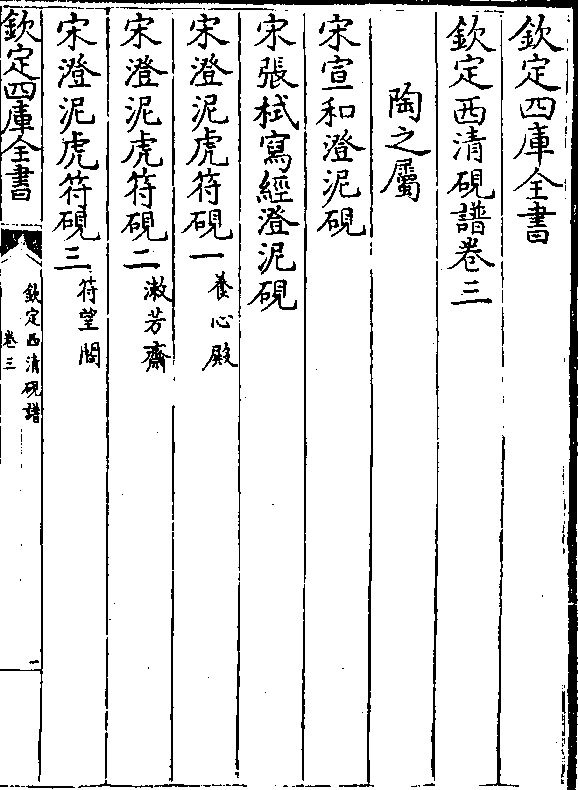 欽定四庫全書
欽定西清硯譜卷三
陶之屬
宋宣和澄泥硯
宋張栻寫經澄泥硯
宋澄泥虎符硯一 養心殿
宋澄泥虎符硯二 漱芳齋
宋澄泥虎符硯三 符望閣
欽定四庫全書
欽定西清硯譜
卷三
一